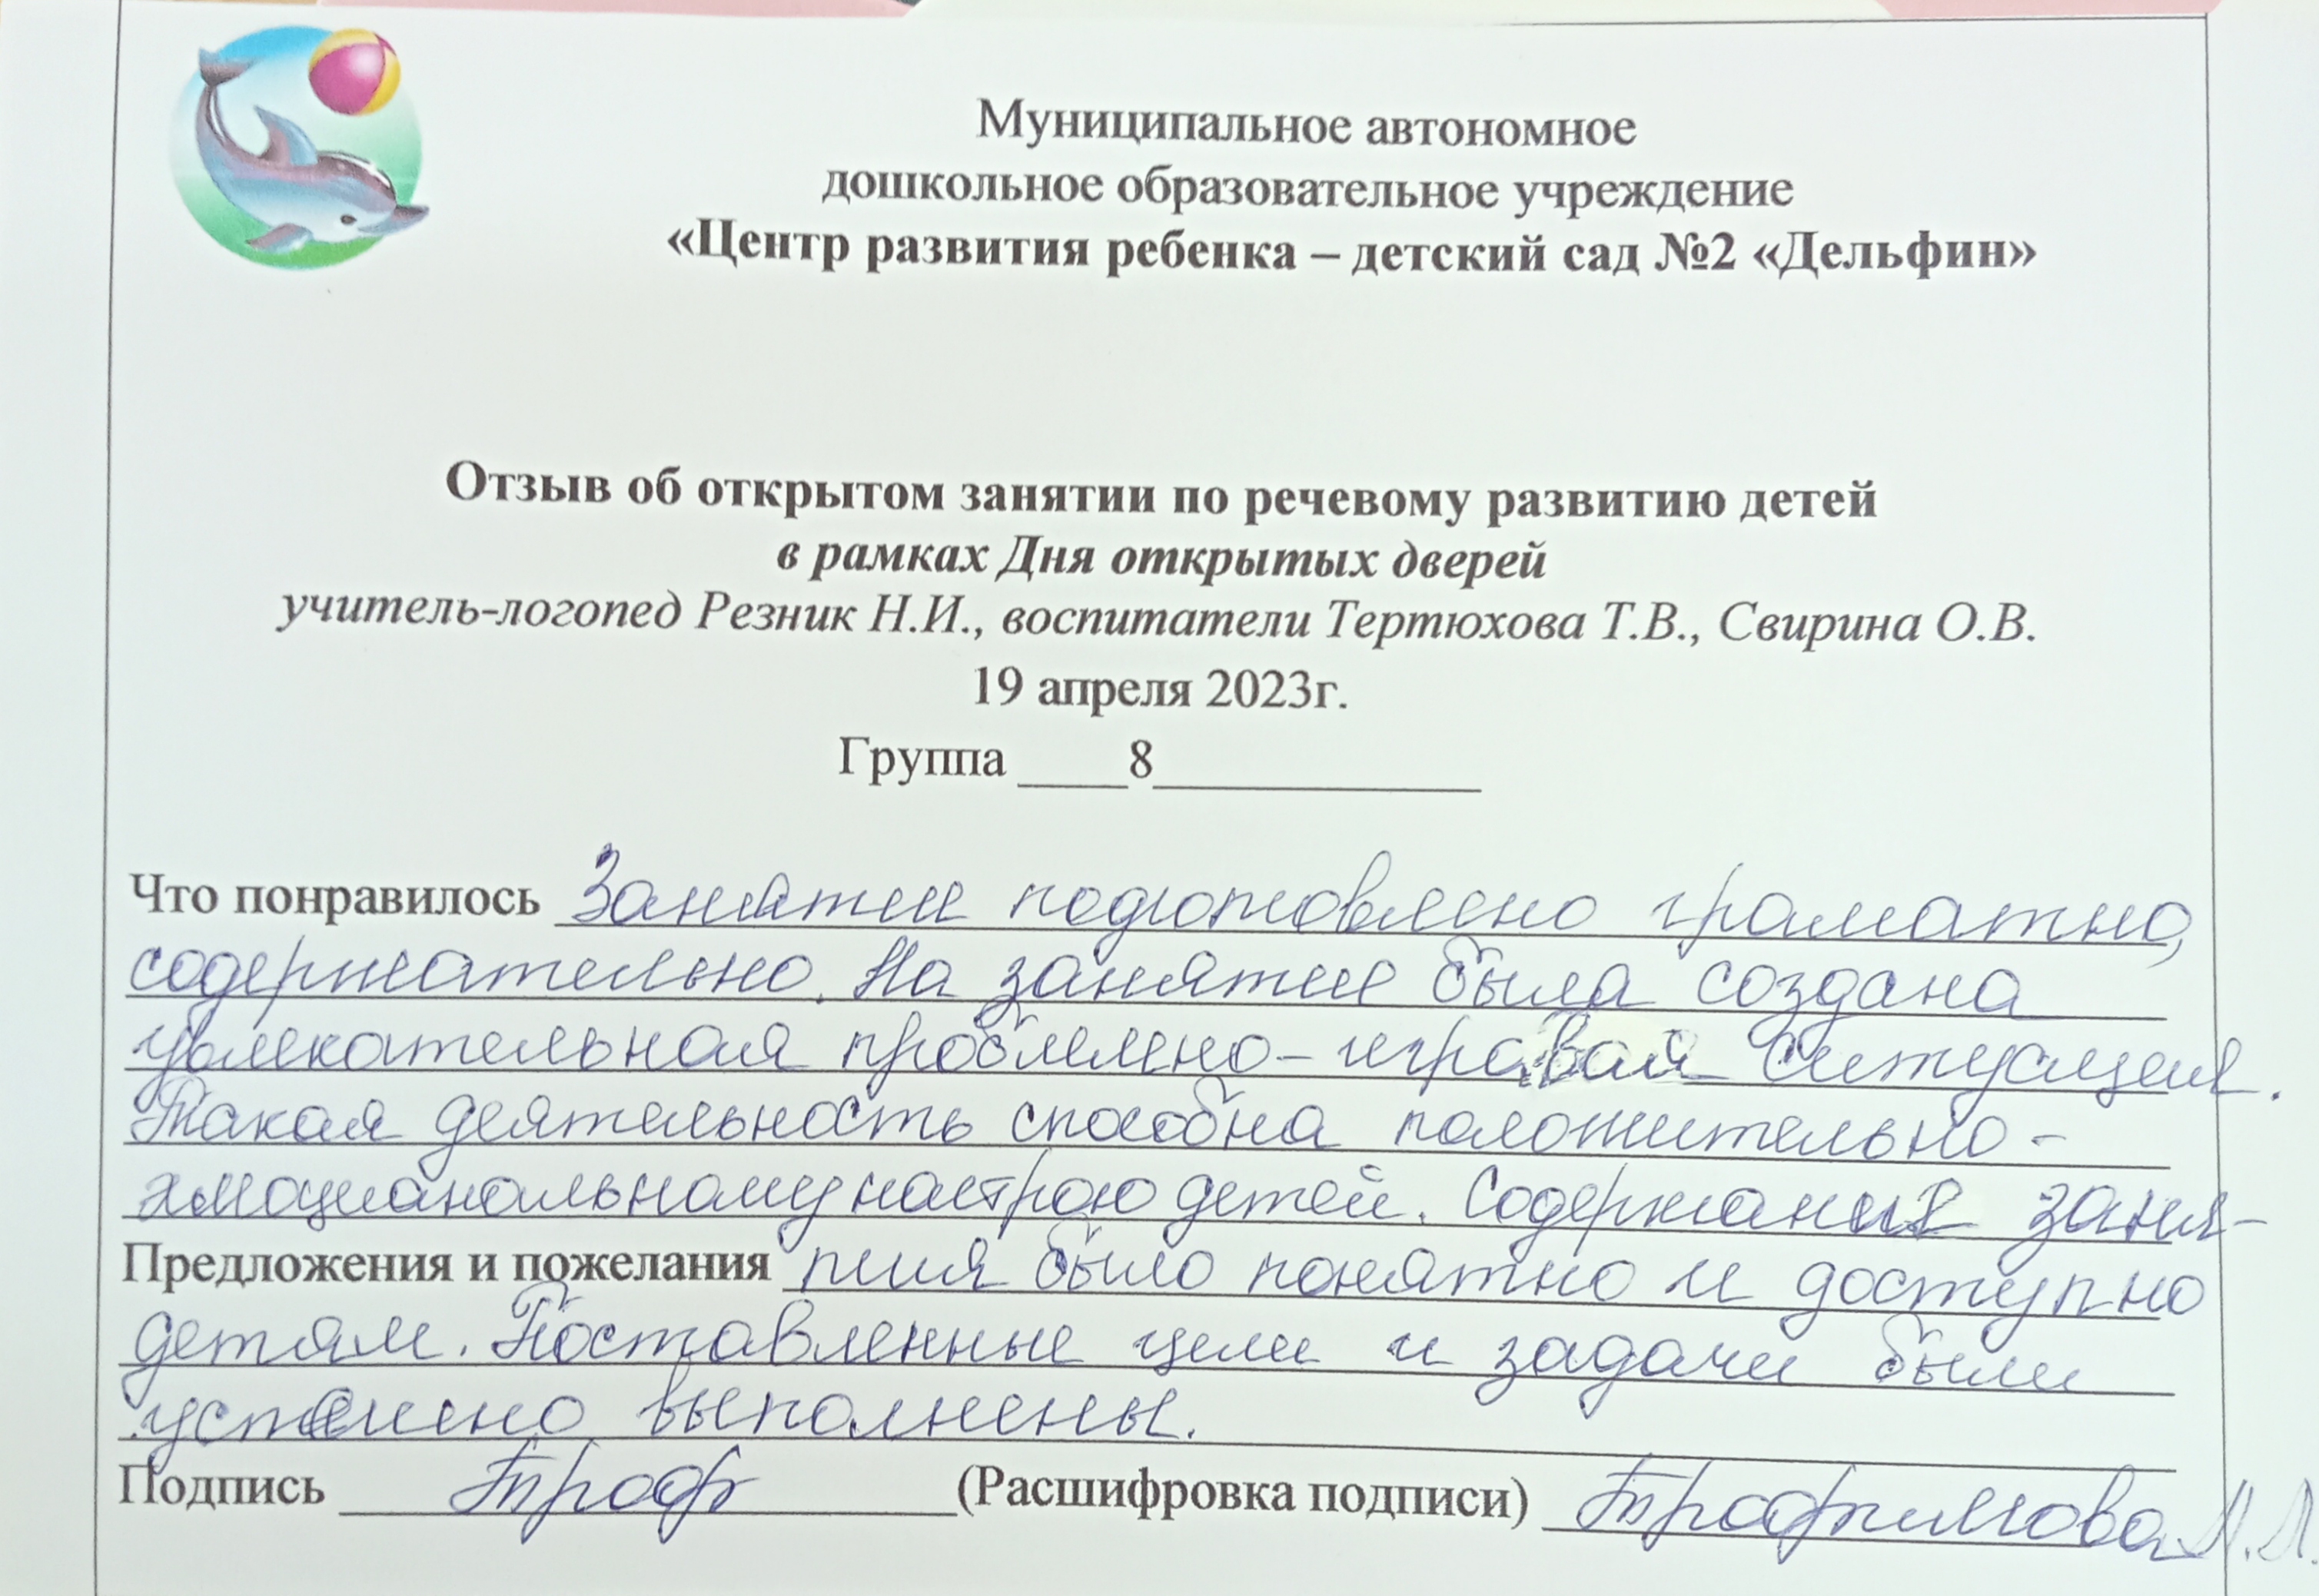 Муниципальное автономное
дошкольное образовательное учреждение
«Центр развития ребенка – детский сад №2 «Дельфин»
Отзыв об открытом занятии по речевому развитию детей
в рамках Дня открытых дверей
учитель-логопед Резник Н.И., воспитатели Тертюхова Т.В., Свирина О.В.
19 апреля 2023г.
Группа ____8____________
Что понравилось Занятии подготовлено граматно,
содержательно. На занятие была создана
увлекательная проблемено-игровая ситуация.
Такая деятельность способна положительно-
эмоциональному настрою детей. Содержание заня-
Предложения и пожелания тия было понятно и доступно
детям. Поставленные цели и задачи были
успешно выполнены.
Подпись Троф (Расшифровка подписи) Трофимова Л.Л.